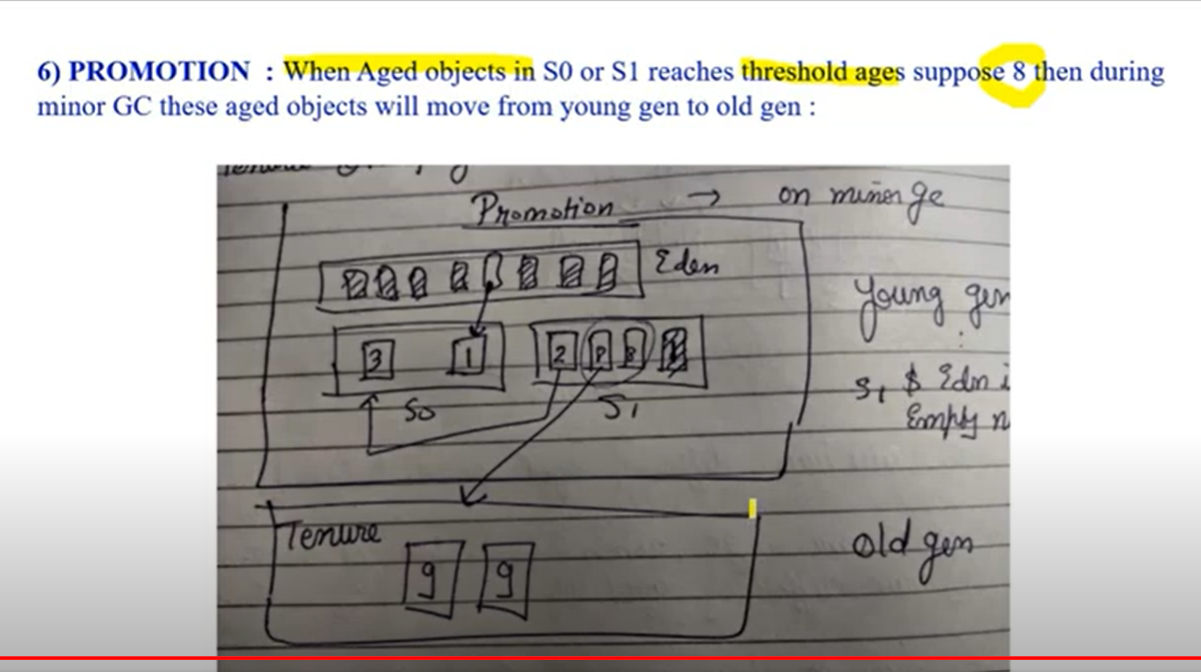 6) PROMOTION : When Aged objects in S0 or S1 reaches threshold ages suppose 8 then during
minor GC these aged objects will move from young gen to old gen :
Promotion → on minor gc
Eden
Young gen
3 1 2 8 8
S0 S1
S1 & Eden i
Empty n
Tenure
old gen
9 9